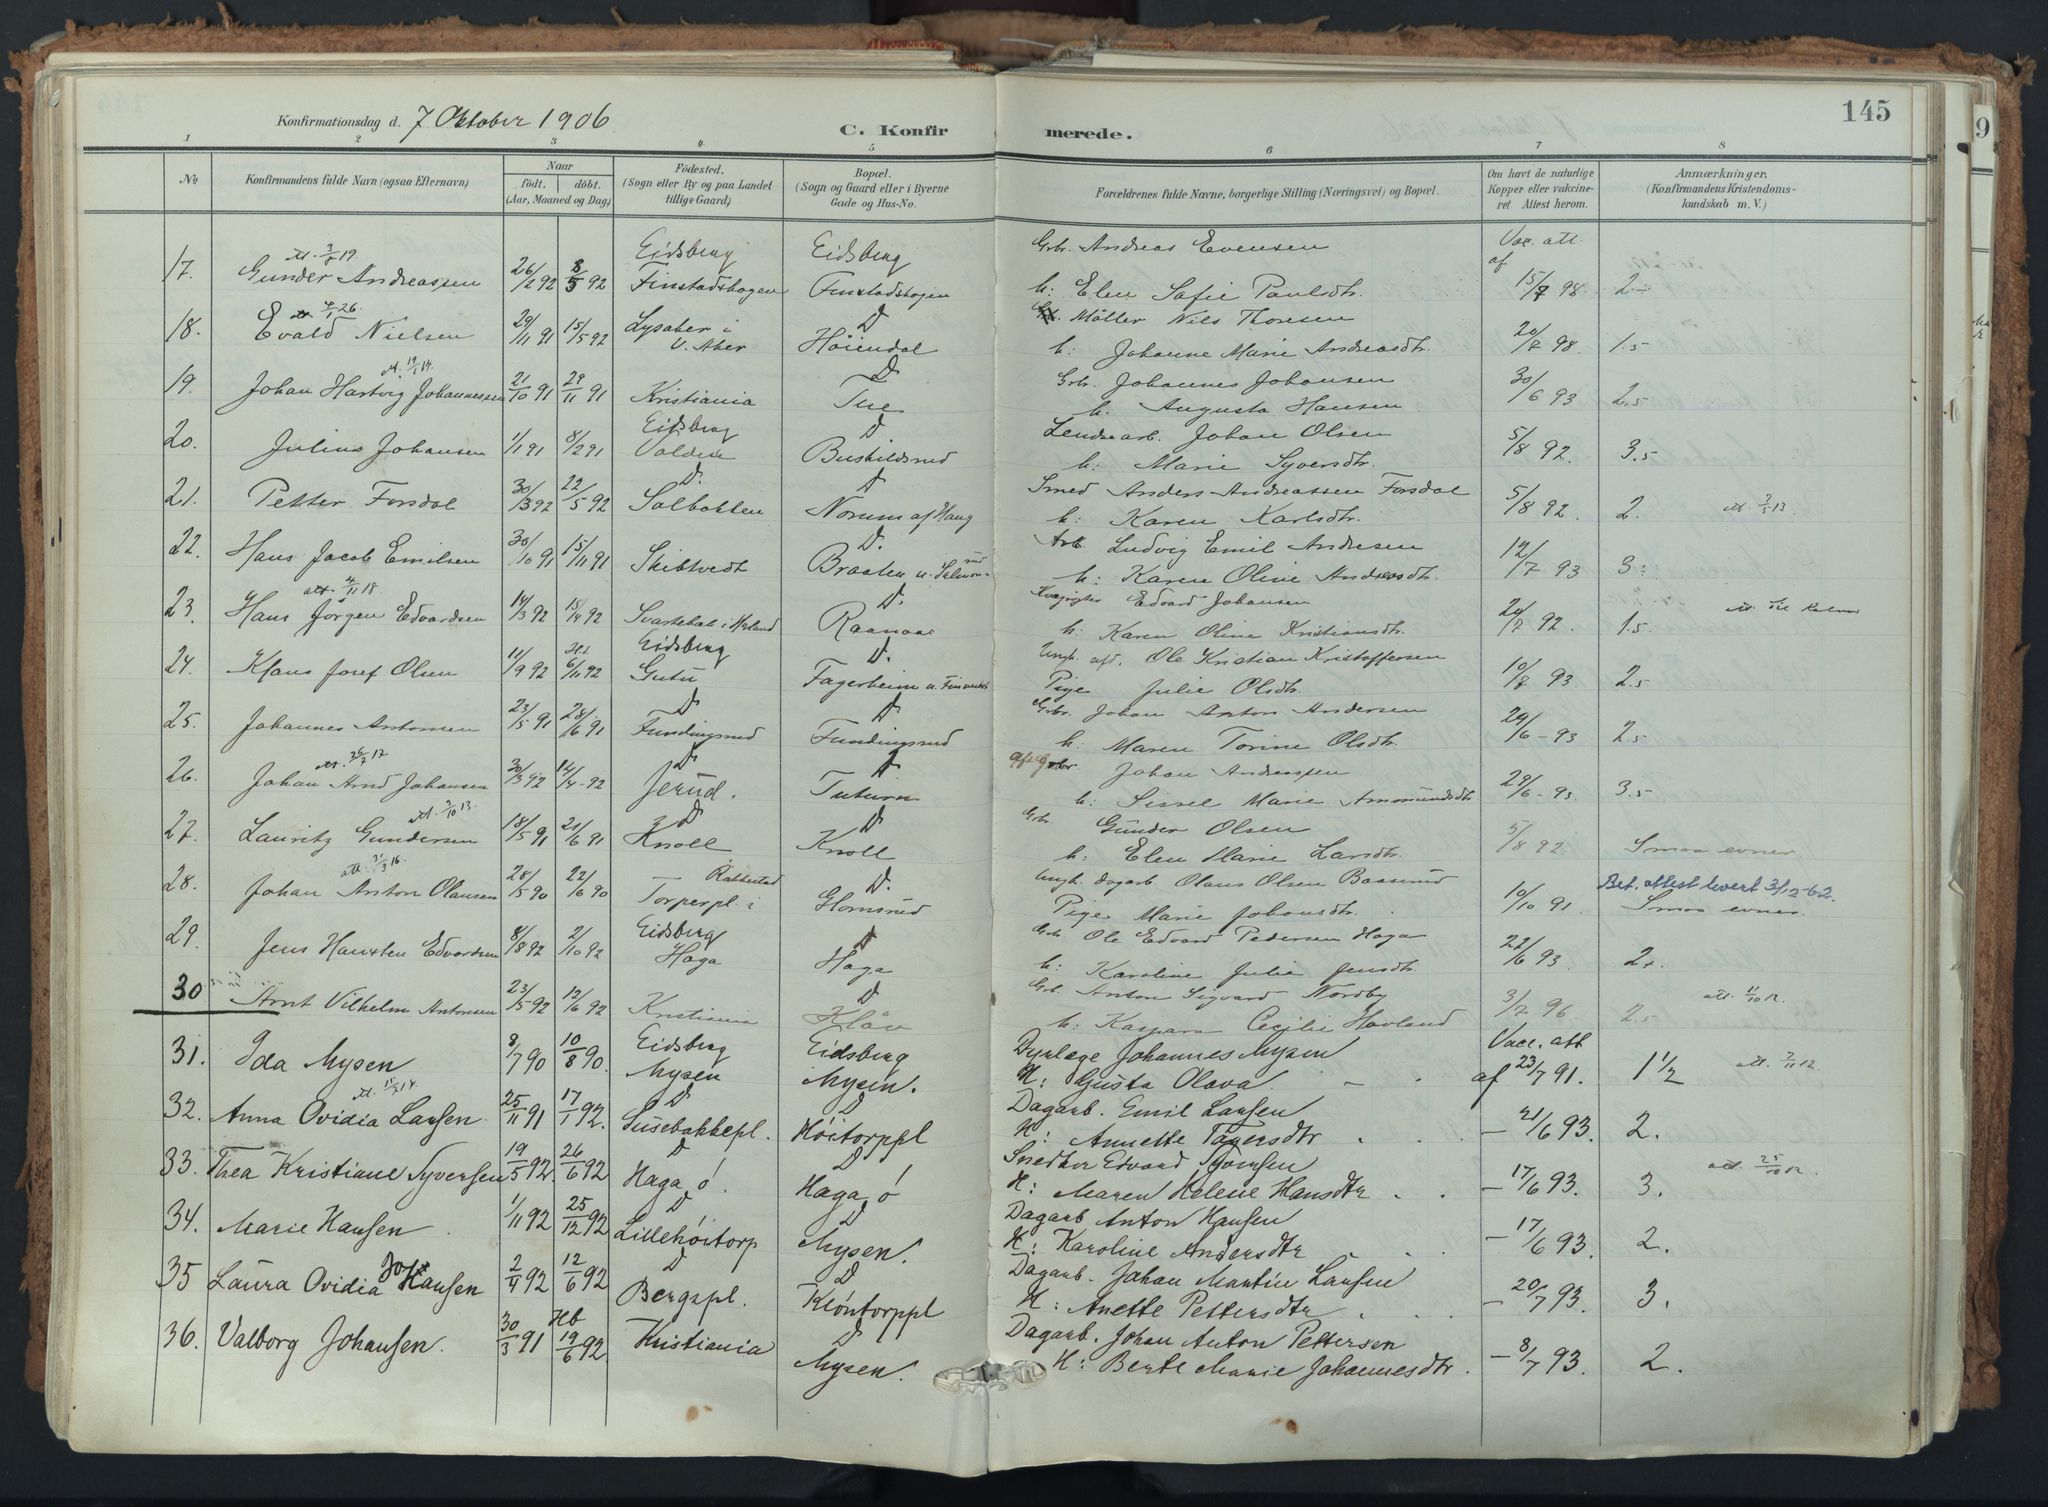 145
Konfirmationsdag d. 7 Oktober 1906
C. Konfirmerede.
1 2 3 4 5 6 7 8
No
Konfirmandens fulde Navn (ogsaa Efternavn)
Naar
födt. döbt.
(Aar, Maaned og Dag)
Födested.
(Sogn eller By og paa Landet
tillige Gaard)
Bopæl.
(Sogn og Gaard eller i Byerne
Gade og Hus-No.
Forældrenes fulde Navne, borgerlige Stilling (Næringsvei) og Bopæl.
Om havt de naturlige
Kopper eller vakcine-
ret Attest herom.
Anmærkninger.
(Konfirmandens Kristendoms-
kundskab m. V.)
att. 3/8 19 Eidsberg Eidsberg Grbr. Andreas Evensen Vac. att. af
17. Gunder Andreassen 26/2 92 8/5 92 Finstadskogen Finstadskogen h: Elen Safie Paulsdtr. 15/7 98 2.
att. 4/1 26. D Møller Nils Thoresen
18. Evald Nielsen 29/11 91 15/5 92 Lysaker i V. Aker Høiendal h: Johanne Marie Andreasdtr. 20/7 98. 1.5
att. 19/1 14. D. Grbr. Johannes Johansen
19. Johan Hartvig Johannessen 21/10 91 29/11 91 Kristiania Tue h. Augusta Hansen 30/6 93 2.5
Eidsberg D Johan Olsen
20. Julius Johansen 1/1 91 8/2 91 Volden Buskildsrud h: Marie Syversdtr. 5/8 92. 3.5
D. D Smed Anders Andreassen Forsdal
21. Petter Forsdal 30/3 92 22/5 92 Solbakken Norum af Haug h: Karen Karlsdtr. 5/8 92. 2. att. 7/1 13.
D. Arb. Ludvig Emil Andresen
22. Hans Jacob Emilsen 30/10 91 15/11 91 Skibtvedt Braaten u. Salmonrud h: Karen Oline Andreasdtr. 12/7 93 3.
att. 4/11 18. D. Edvard Johansen
23. Hans Jørgen Edvardsen 14/3 92 15/4 92 Svartebæk i Høland h: Karen Oline Kristiansdtr. 20/7 92. 1.5
Eidsberg D. Ungk. afd. Ole Kristian Kristoffersen
24. Klaus Josef Olsen 11/9 92 6/11 92 Gutu Fagerheim Pige Julie Olsdtr. 10/8 93. 2.5
D D Grbr. Johan Anton Andersen
25. Johannes Antonsen 23/5 91 28/6 91 Fundingsrud Fundingsrud h. Maren Torine Olsdtr. 29/6 - 93 2.5
att. 26/7 12 D Johan Andreassen
26. Johan Arnd Johansen 30/3 92 14/4 - 92 Jerud. h: Sissel Marie Ammundsdtr 29/6 - 93 3.5
att. 3/10 13. D D Grbr. Gunder Olsen
27. Lauritz Gundersen 18/5 91 21/6 91 Knoll Knoll h: Elen Marie Larsdtr. 5/8 92 Smaa evner
att. 31/3 16. Rakkestad D. Ungk. dagarb. Olaus Olsen Bet. attest levert 3/12-62.
28. Johan Anton Olausen 28/5 90 22/6 90 Torperpl. i Glomsrud Pige Marie Johansdtr. 10/10 91. Smaa evner.
Eidsberg D Grb. Ole Edvard Pedersen Haga
29. Jens Edvardsen 8/8 92 2/10 92 Haga Haga h: Karoline Julie Jensdtr. 22/6 93. 2.
D Grb. Anton Sigvard Nordby
30 Arnt Vilhelm Antonsen 23/5 92 12/6 92 Kristiania h: Kaspara Cecilie Hovland 3/2 96 2.5 att. 11/10 12.
31. Ida Mysen 8/7 90 10/8 90. Eidsberg Mysen Eidsberg Mysen. Dyrlæge Johannes Mysen Vacc. att
H: Gusta Olava. af 23/7 91. 1 1/2 att. 7/11 12.
att. 11/2 14. D D Dagarb. Emil Larsen
32. Anna Ovidia Larsen. 25/11 91 17/1 92. Susebakkepl. Høitorppl H: Annette Tagersdtr — 21/6 93. 2.
D D Snedker Edvard Syversen
33. Thea Kristiane Syversen 19/5 92. 26/6 92 Haga ö. Haga ö H: Maren Helene Hansdtr — 17/6 93. 3. att. 25/10 12.
D D Dagarb Anton Hansen
34. Marie Hansen. 1/11 92 25/12 92 Lillehöitorp Mysen. H: Karoline Andersdtr — 17/6 93. 2.
D D Dagarb. Johan Martin Larsen
35 Laura Ovidia Johansen 2/4 92 12/6 92 Bergspl. Klöntorppl H: Anette Pettersdtr — 20/7 93. 3.
D Dagarb. Johan Anton Pettersen
36. Valborg Johansen. 30/3 91 Hb 19/6 92. Kristiania Mysen. H: Berte Marie Johannesdtr. — 8/7 93. 2.